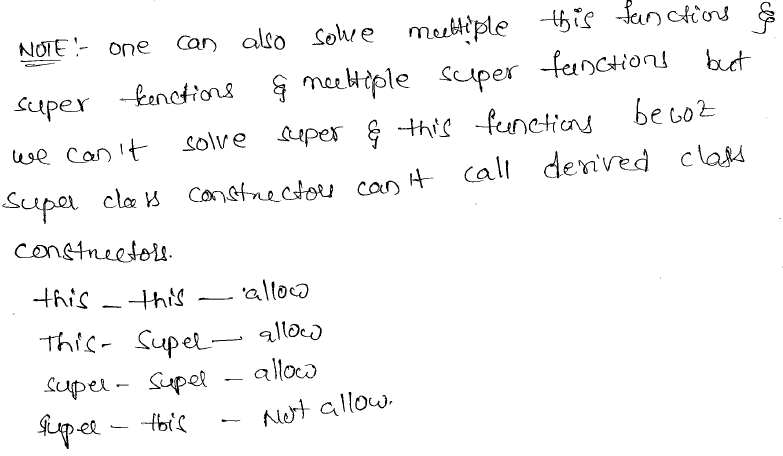 NOTE:- one can also solve multiple this functions &
super functions & multiple super functions but
we can't solve super & this functions becoz
Super class constructors can't call derived class
constructors.
this - this - allow
This - Super - allow
super - super - allow
Super - this - Not allow.